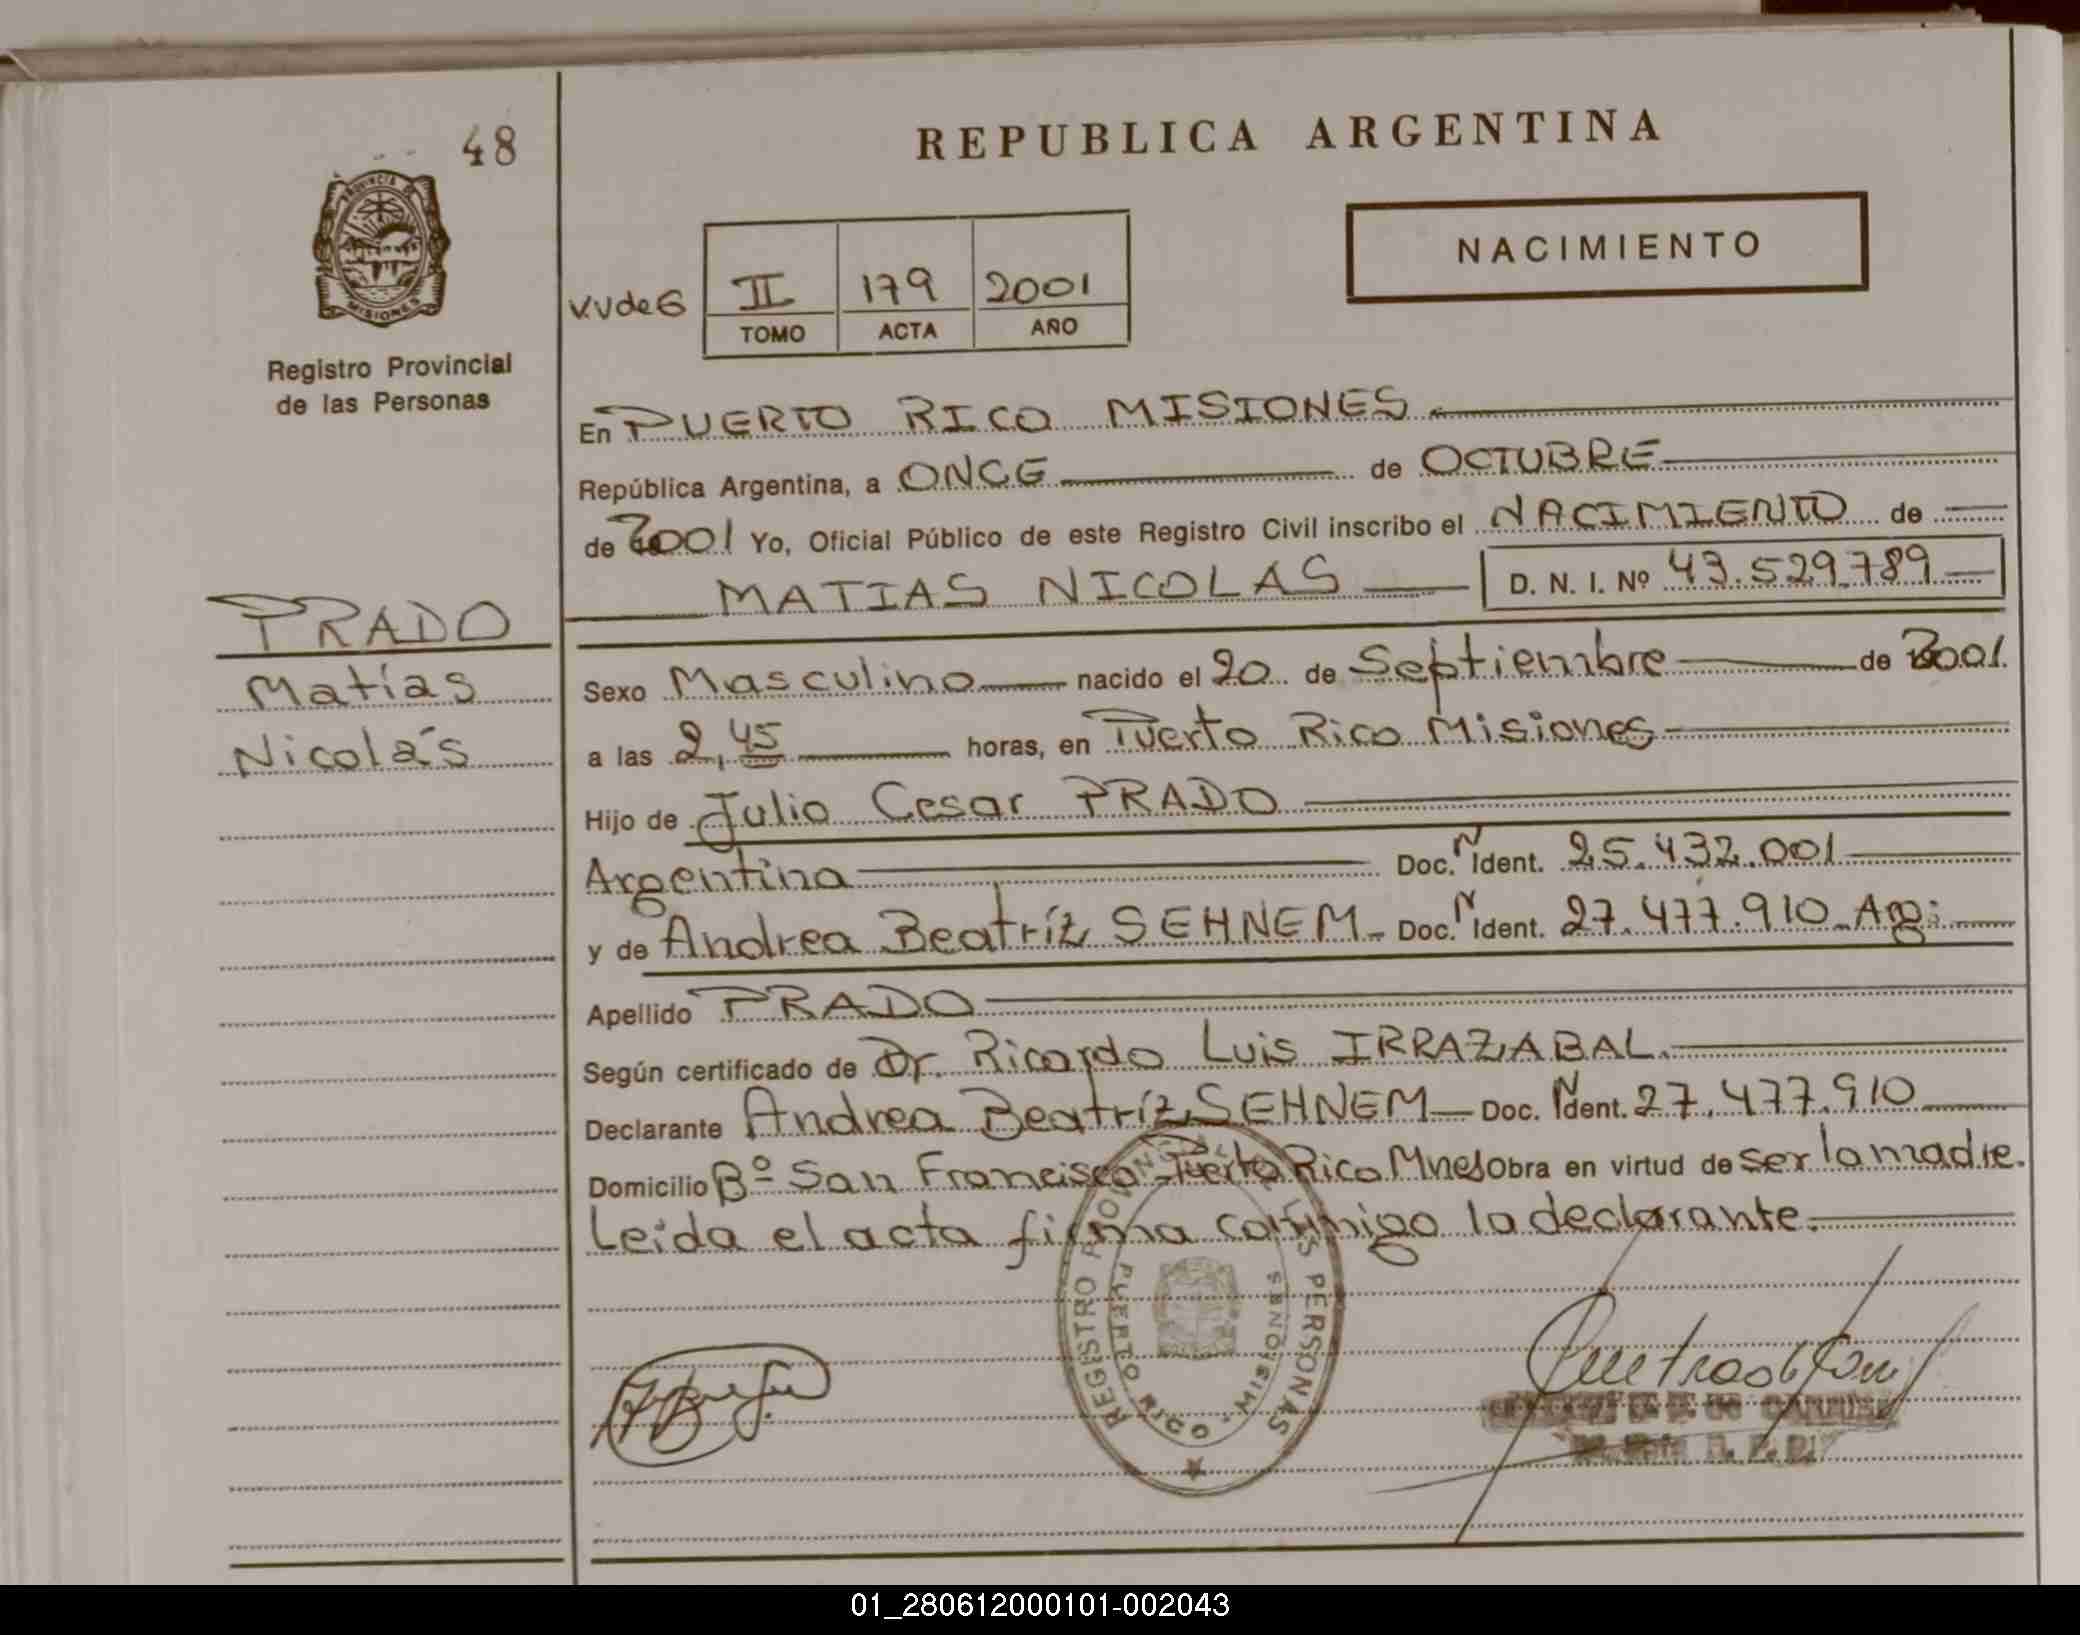 48
REPUBLICA ARGENTINA
NACIMIENTO
PROVINCIA DE
MISIONES
V.V de G
II 179 2001
TOMO ACTA AÑO
Registro Provincial
de las Personas
En PUERTO RICO MISIONES
República Argentina, a ONCE de OCTUBRE
de 2001 Yo, Oficial Público de este Registro Civil inscribo el NACIMIENTO de
MATIAS NICOLAS D. N. I. Nº 43.529.789
PRADO
Matías
Nicolás
Sexo Masculino nacido el 20 de Septiembre de 2001.
a las 2,45 horas, en Puerto Rico Misiones
Hijo de Julio Cesar PRADO
Argentina Doc. N Ident. 25.432.001
y de Andrea Beatríz SEHNEM Doc. N Ident. 27.477.910 Arg:
Apellido PRADO
Según certificado de Dr. Ricardo Luis IRRAZABAL.
Declarante Andrea Beatríz SEHNEM Doc. N Ident. 27.477.910
Domicilio Bº San Francisco Puerto Rico Mnes Obra en virtud de ser la madre.
Leida el acta firma conmigo la declarante.
REGISTRO PROVINCIAL DE LAS PERSONAS
PUERTO RICO - MISIONES
01_280612000101-002043